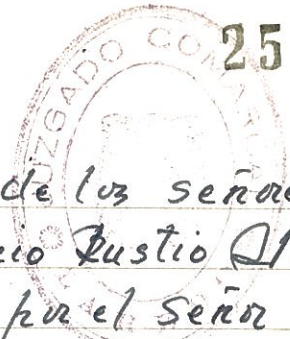 25
JUZGADO COMARCAL
de los señore
cio Rustio Al
por el señor